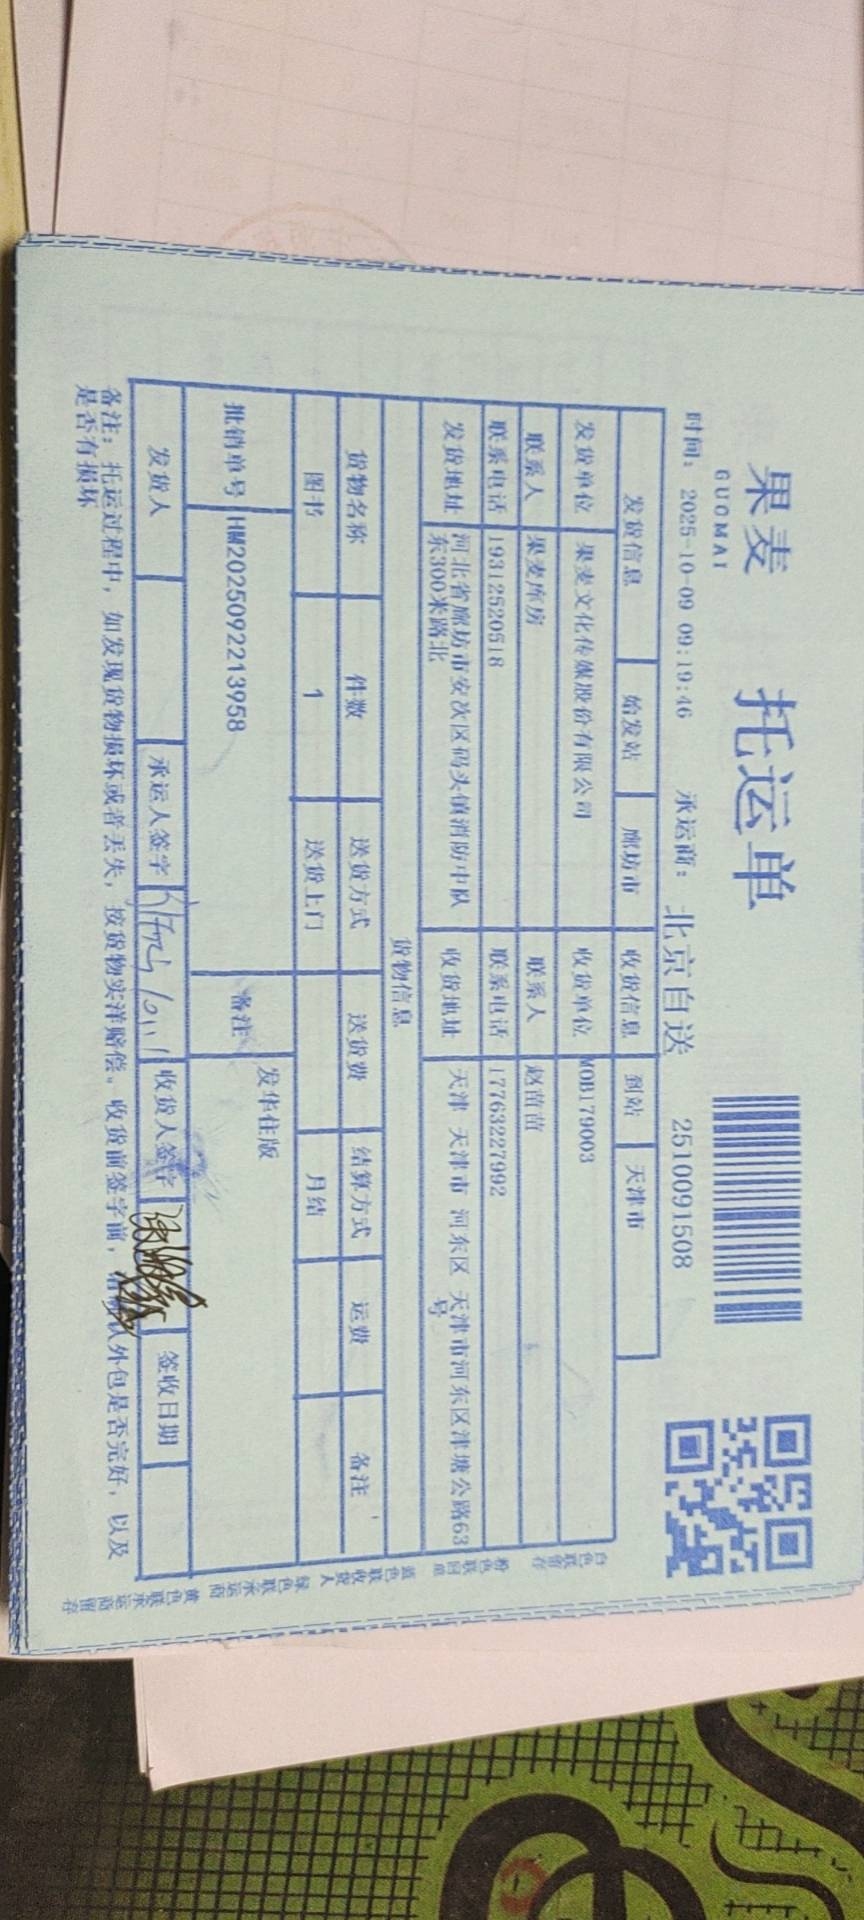 果麦
GUOMAI
托运单
时间: 2025-10-09 09:19:46 承运商: 北京自送 2510091508
发货信息 始发站 廊坊市 收货信息 到站 天津市
发货单位 果麦文化传媒股份有限公司 收货单位 MOB179003
联系人 果麦库房 联系人 赵苗苗
联系电话 19312520518 联系电话 17763227992
发货地址 河北省廊坊市安次区码头镇消防中队东300米路北 收货地址 天津 天津市 河东区 天津市河东区津塘公路63号
货物信息
货物名称 件数 送货方式 送货费 结算方式 运费 备注
图书 1 送货上门 月结
批销单号 HM2025092213958 备注 发华住版
发货人 承运人签字 收货人签字 签收日期
备注: 托运过程中, 如发现货物损坏或者丢失, 按货物实洋赔偿。收货前签字前, 认外包是否完好, 以及
是否有损坏
白色联留存 粉色联回单 蓝色联收货人 绿色联承运商 黄色联承运商留存